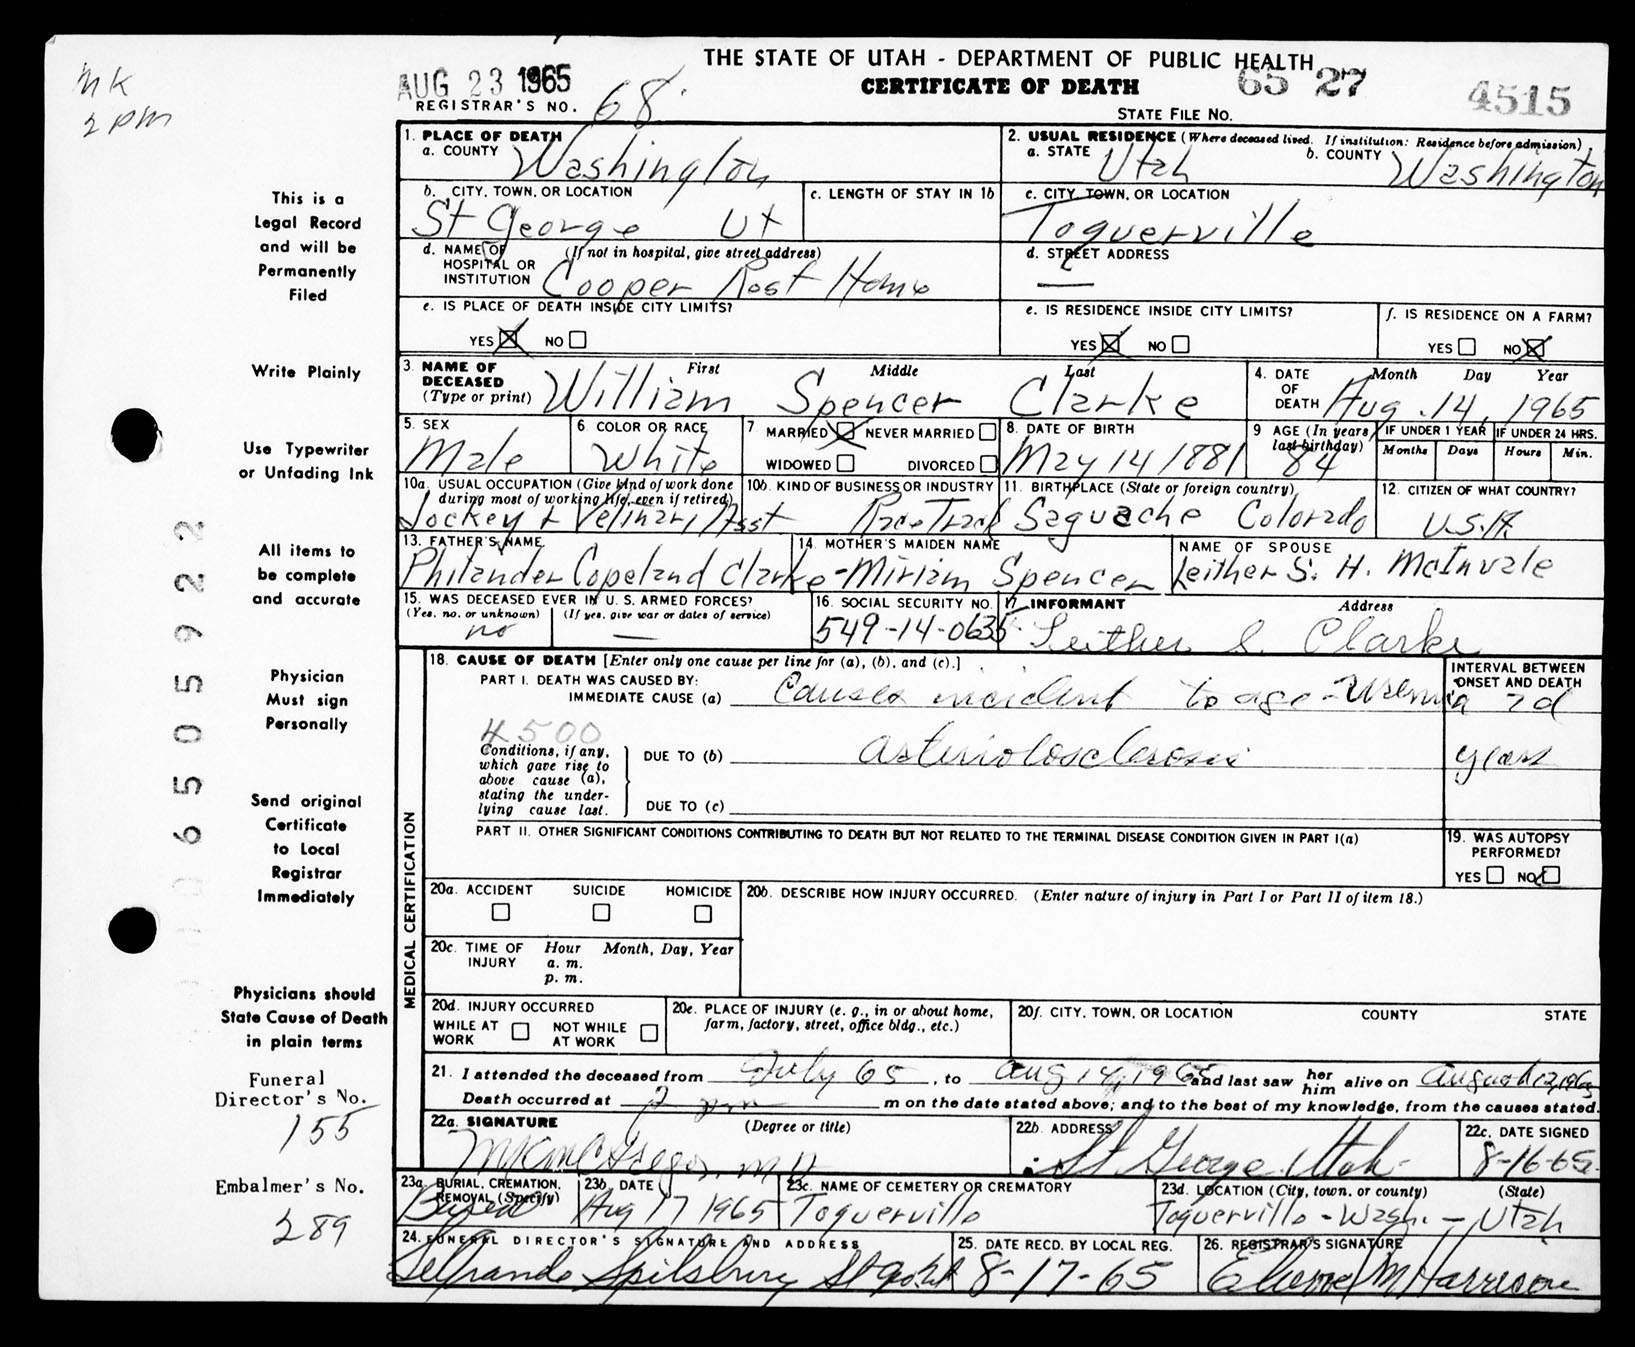 MK
2 pm
THE STATE OF UTAH - DEPARTMENT OF PUBLIC HEALTH
AUG 23 1965
CERTIFICATE OF DEATH
65 27
4515
REGISTRAR'S NO. 68
STATE FILE NO.
This is a
Legal Record
and will be
Permanently
Filed
Write Plainly
Use Typewriter
or Unfading Ink
All items to
be complete
and accurate
Physician
Must sign
Personally
Send original
Certificate
to Local
Registrar
Immediately
Physicians should
State Cause of Death
in plain terms
Funeral
Director's No.
155
Embalmer's No.
289
006505922
1. PLACE OF DEATH
a. COUNTY Washington
2. USUAL RESIDENCE (Where deceased lived. If institution: Residence before admission)
a. STATE Utah b. COUNTY Washington
b. CITY, TOWN, OR LOCATION
St George Ut
c. LENGTH OF STAY IN 1b
c. CITY, TOWN, OR LOCATION
Toquerville
d. NAME OF (If not in hospital, give street address)
HOSPITAL OR
INSTITUTION Cooper Rest Home
d. STREET ADDRESS
—
e. IS PLACE OF DEATH INSIDE CITY LIMITS?
YES NO
e. IS RESIDENCE INSIDE CITY LIMITS?
YES NO
f. IS RESIDENCE ON A FARM?
YES NO
3. NAME OF
DECEASED
(Type or print)
First Middle Last
William Spencer Clarke
4. DATE
OF
DEATH
Month Day Year
Aug. 14, 1965
5. SEX
Male
6. COLOR OR RACE
White
7. MARRIED NEVER MARRIED
WIDOWED DIVORCED
8. DATE OF BIRTH
May 14 1881
9. AGE (In years
last birthday)
84
IF UNDER 1 YEAR
Months Days
IF UNDER 24 HRS.
Hours Min.
10a. USUAL OCCUPATION (Give kind of work done
during most of working life, even if retired)
Jockey & Vetinary Asst
10b. KIND OF BUSINESS OR INDUSTRY
Race Track
11. BIRTHPLACE (State or foreign country)
Saguache Colorado
12. CITIZEN OF WHAT COUNTRY?
U.S.A.
13. FATHER'S NAME
Philander Copeland Clarke
14. MOTHER'S MAIDEN NAME
Miriam Spencer
NAME OF SPOUSE
Leither S. H. McInvale
15. WAS DECEASED EVER IN U.S. ARMED FORCES?
(Yes, no, or unknown) (If yes, give war or dates of service)
no —
16. SOCIAL SECURITY NO.
549-14-0635
17. INFORMANT Address
Leither S. Clarke
MEDICAL CERTIFICATION
18. CAUSE OF DEATH [Enter only one cause per line for (a), (b), and (c).]
PART I. DEATH WAS CAUSED BY:
IMMEDIATE CAUSE (a) Causes incident to age - Uremia
INTERVAL BETWEEN
ONSET AND DEATH
7d
4500
Conditions, if any,
which gave rise to
above cause (a),
stating the under-
lying cause last.
DUE TO (b) arteriolosclerosis
years
DUE TO (c)
PART II. OTHER SIGNIFICANT CONDITIONS CONTRIBUTING TO DEATH BUT NOT RELATED TO THE TERMINAL DISEASE CONDITION GIVEN IN PART I(a)
19. WAS AUTOPSY
PERFORMED?
YES NO
20a. ACCIDENT SUICIDE HOMICIDE
20b. DESCRIBE HOW INJURY OCCURRED. (Enter nature of injury in Part I or Part II of item 18.)
20c. TIME OF
INJURY
Hour Month, Day, Year
a. m.
p. m.
20d. INJURY OCCURRED
WHILE AT
WORK
NOT WHILE
AT WORK
20e. PLACE OF INJURY (e. g., in or about home,
farm, factory, street, office bldg., etc.)
20f. CITY, TOWN, OR LOCATION COUNTY STATE
21. I attended the deceased from July 65, to Aug 14, 1965 and last saw her him alive on August 12, 1965
Death occurred at 2 pm m on the date stated above; and to the best of my knowledge, from the causes stated.
22a. SIGNATURE (Degree or title)
McGregor, M.D.
22b. ADDRESS
St George Utah
22c. DATE SIGNED
8-16-65
23a. BURIAL, CREMATION,
REMOVAL (Specify)
Burial
23b. DATE
Aug 17 1965
23c. NAME OF CEMETERY OR CREMATORY
Toquerville
23d. LOCATION (City, town, or county) (State)
Toquerville - Wash. - Utah
24. FUNERAL DIRECTOR'S SIGNATURE AND ADDRESS
Spilsbury
25. DATE RECD. BY LOCAL REG.
8-17-65
26. REGISTRAR'S SIGNATURE
M Harrison